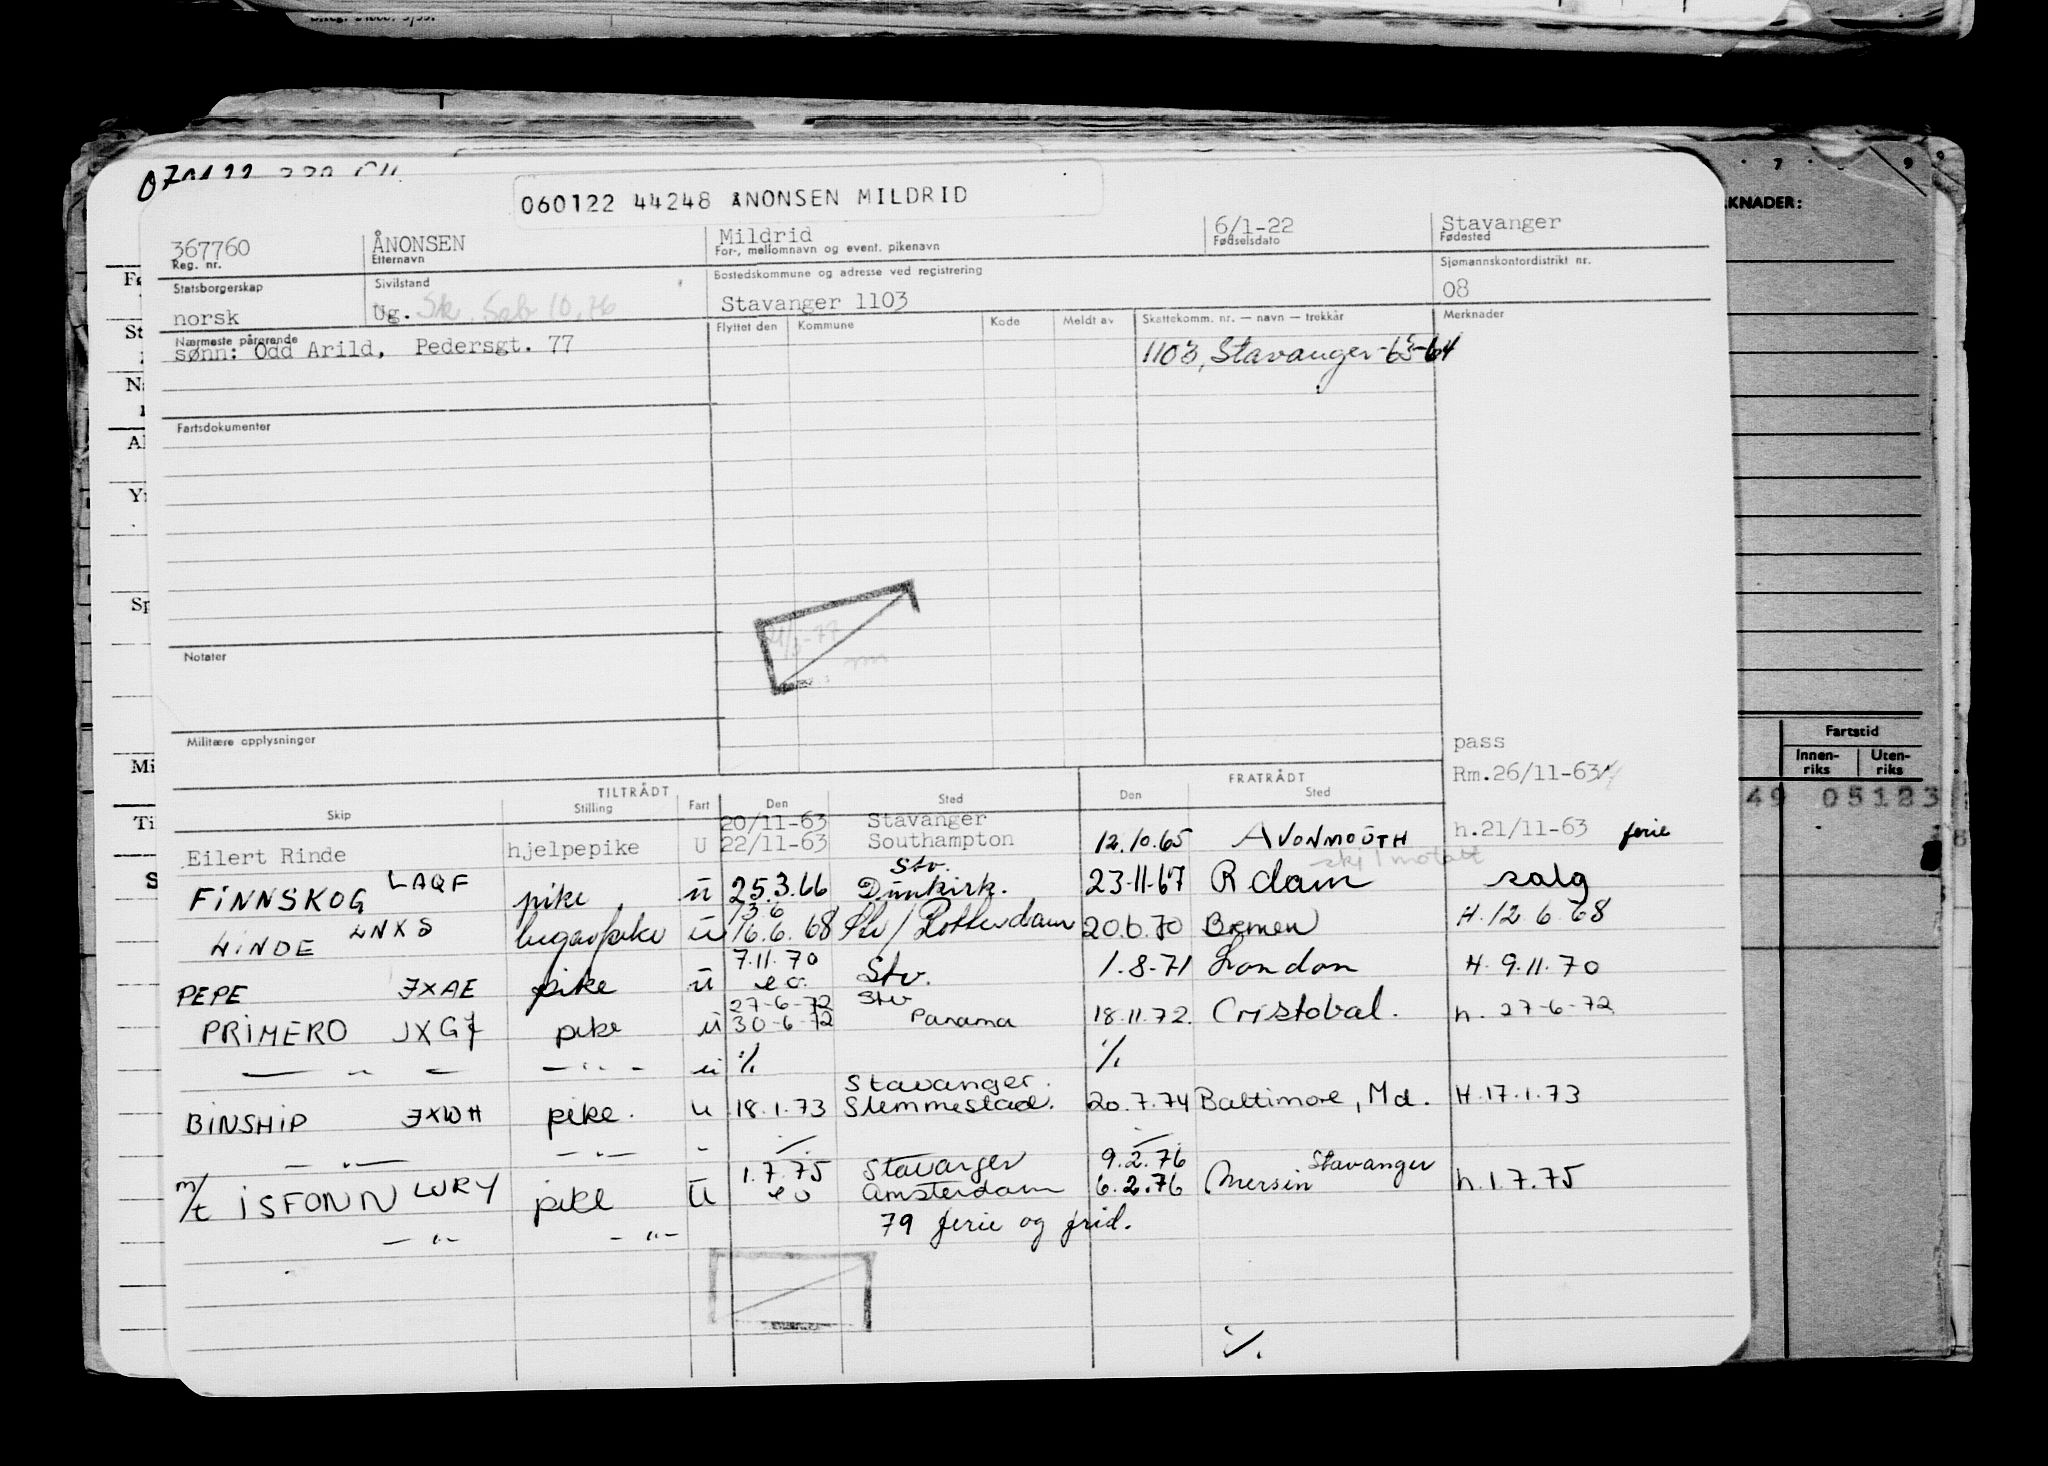 060122 44248 ÅNONSEN MILDRID
367760 ÅNONSEN Mildrid 6/1-22 Stavanger
Reg. nr. Etternavn For-, mellomnavn og event. pikenavn Fødselsdato Fødested
Statsborgerskap Sivilstand Bostedskommune og adresse ved registrering Sjømannskontordistrikt nr.
norsk Ug. Stavanger 1103 08
Nærmeste pårørende Flyttet den Kommune Kode Meldt av Skattekomm. nr. — navn — trekkår Merknader
sønn: Odd Arild, Pedersgt. 77 1103, Stavanger-65-64
Fartsdokumenter
Notater
Militære opplysninger
pass
Rm.26/11-63
TILTRÅDT FRATRÅDT
Skip Stilling Fart Den Sted Den Sted
20/11-63 Stavanger
Eilert Rinde hjelpepike U 22/11-63 Southampton 12.10.65 AVONMOUTH h.21/11-63 ferie
Stv.
FINNSKOG LAQF pike ū 25.3.66 Dunkirk. 23-11-67 Rdam salg
13.6
HINDE LNXS lugarpike ū 16.6.68 Stv/Rotterdam 20.6.70 Bremen H.12.6.68
7.11.70
PEPE JXAE pike ū e.o. Stv. 1.8-71 London H. 9.11.70
27-6-72 Stv
PRIMERO JXGJ pike ū 30-6-72 Panama 18.11.72. Cristobal. h. 27-6-72
— " — — " — u ./. ./.
Stavanger.
BINSHIP JXWH pike. u 18.1.73 Slemmestad. 20.7.74 Baltimore, Md. H.17.1.73
— " — — " — - ./. ./.
1.7.75 Stavanger 9.2.76 Stavanger
m/t ISFONN LURY pike Ū e o Amsterdam 6.2.76 Mersin h.1.7.75
— " — — " — 79 ferie og frid.
./.
KNADER:
Fartstid
Innen-riks Uten-riks
49 05123